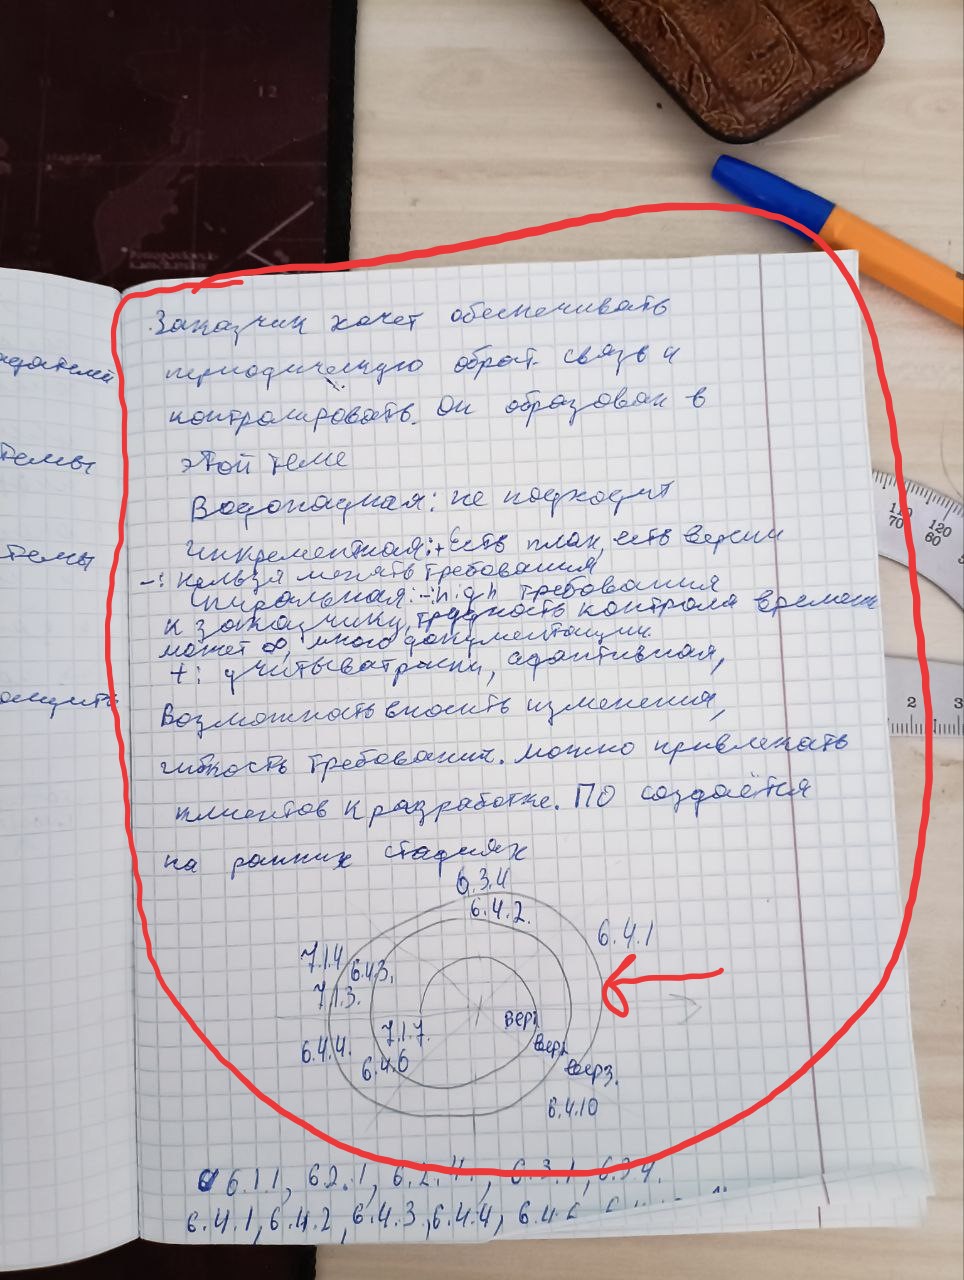 Заказчик хочет обеспечивать
периодическую обрат. связь и
контролировать. Он образован в
этой теме
Водопадная: не подходит
Инкрементная: + Есть план, есть версии
-: нельзя менять требования
Спиральная: -: high требования
к заказчику, трудность контроля времени
может ∞, много документации.
+: учитыват риски, адаптивная,
Возможность вносить изменения,
гибкость требований. можно привлекать
клиентов к разработке. ПО создаётся
на ранних стадиях
6.3.4
6.4.2.
6.4.1
7.1.4
6.4.3.
7.1.3.
7.1.7.
вер1
6.4.4.
вер2
6.4.6
вер3.
6.4.10
6.1.1, 6.2.1, 6.2.4., 6.3.1, 6.3.4.
6.4.1, 6.4.2, 6.4.3, 6.4.4,
темы
темы
12
110
70
120
60
2
3